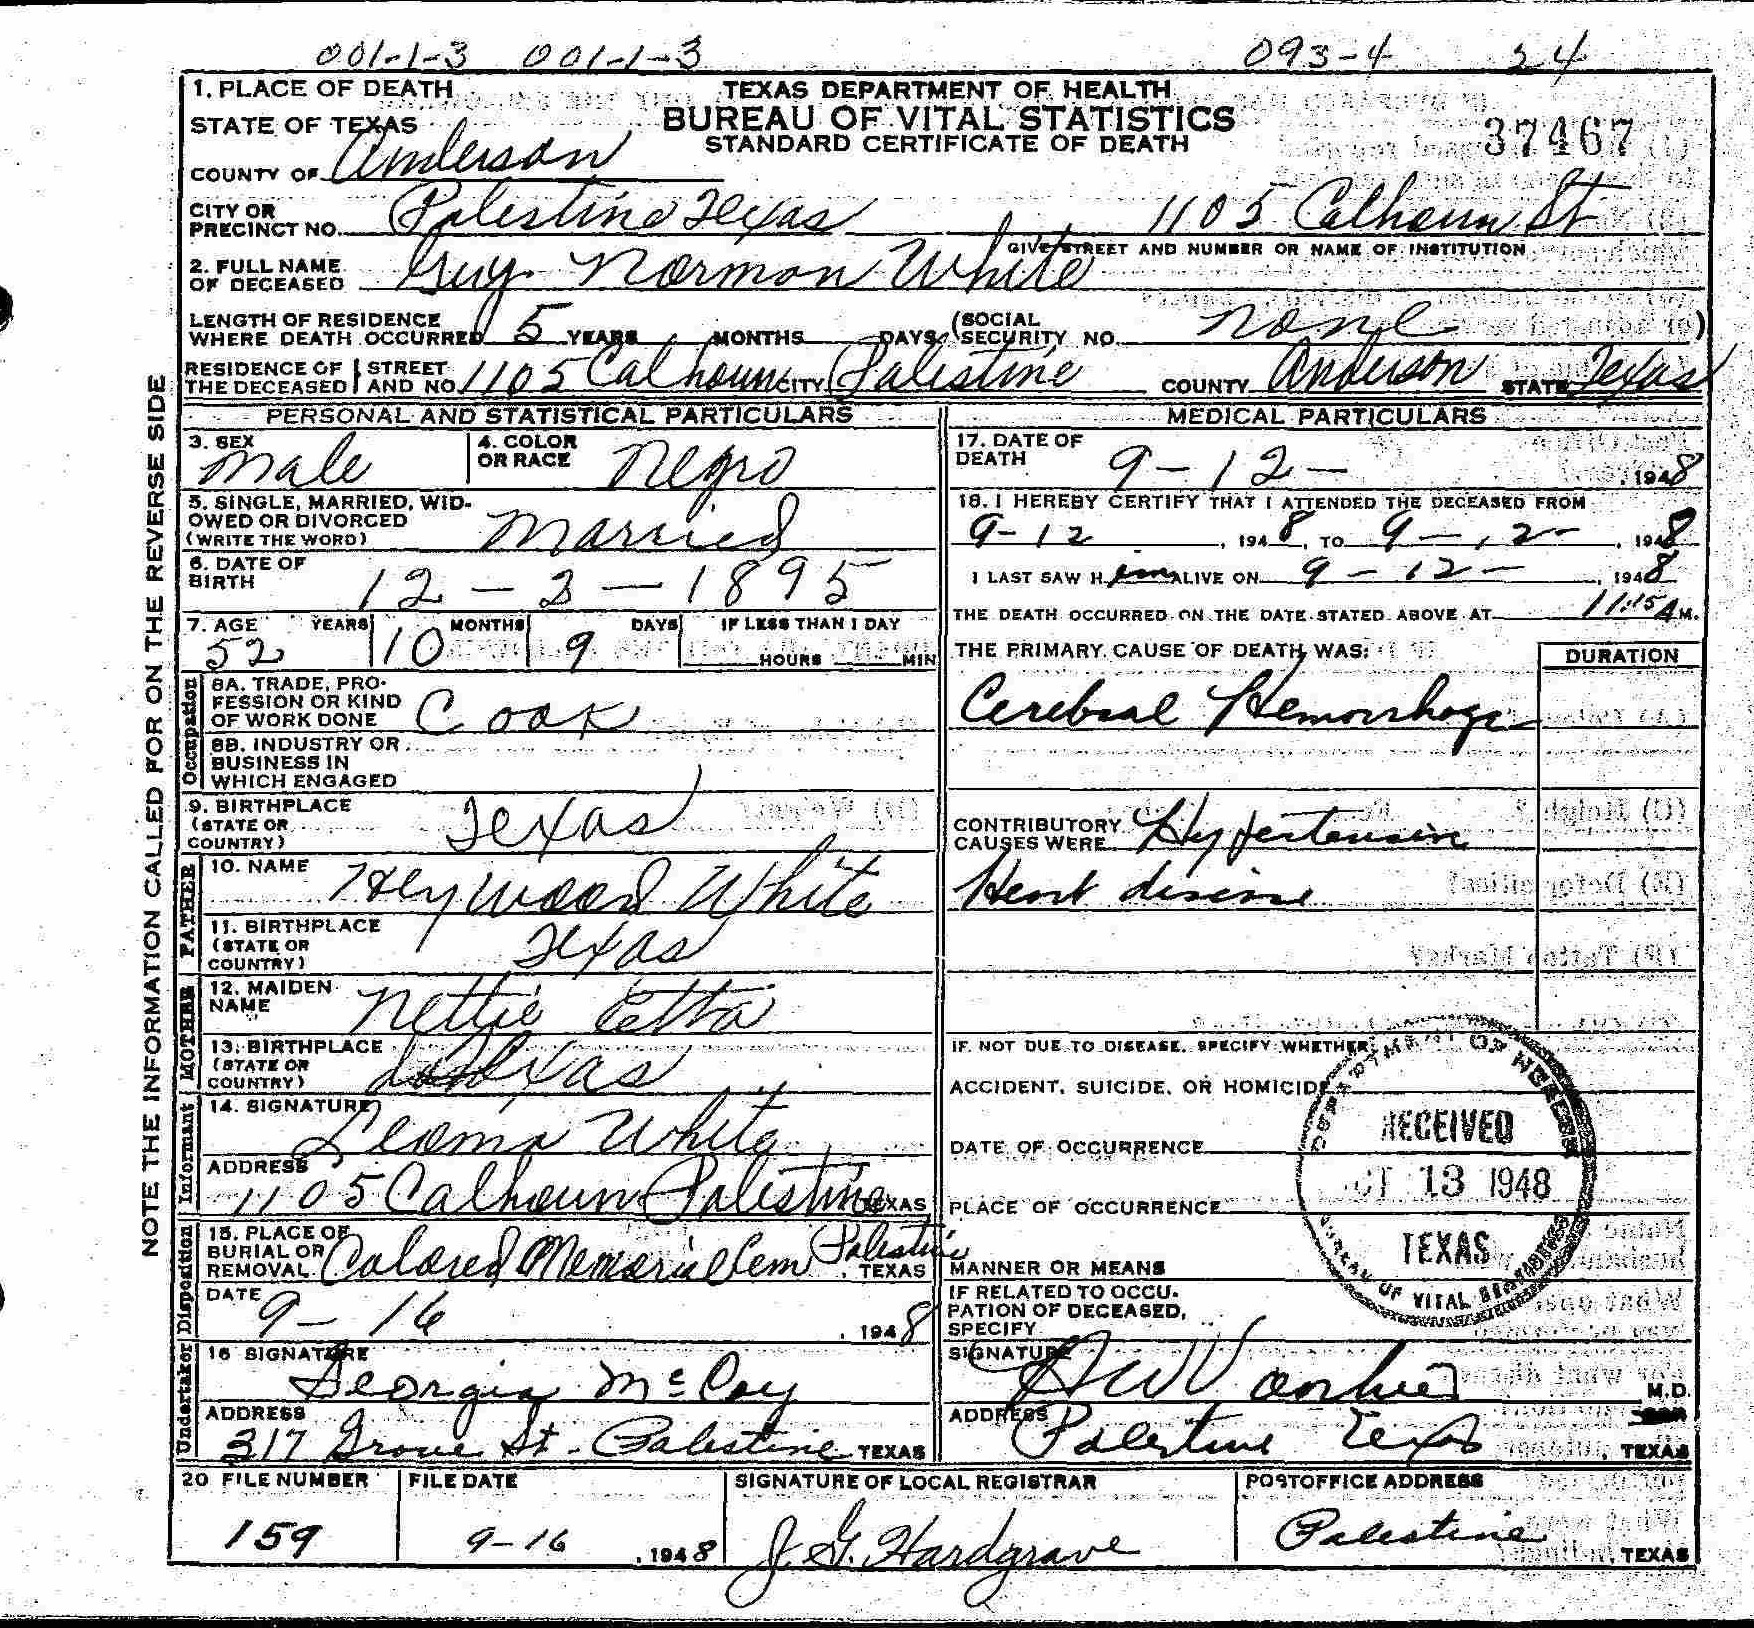 001-1-3 001-1-3 093-4 24
1. PLACE OF DEATH
STATE OF TEXAS
TEXAS DEPARTMENT OF HEALTH
BUREAU OF VITAL STATISTICS
STANDARD CERTIFICATE OF DEATH
37467
COUNTY OF Anderson
CITY OR PRECINCT NO. Palestine Texas 1105 Calhoun St
GIVE STREET AND NUMBER OR NAME OF INSTITUTION
2. FULL NAME OF DECEASED Guy Norman White
LENGTH OF RESIDENCE WHERE DEATH OCCURRED 5 YEARS MONTHS DAYS (SOCIAL SECURITY NO. none)
RESIDENCE OF THE DECEASED STREET AND NO. 1105 Calhoun CITY Palestine COUNTY Anderson STATE Texas
NOTE THE INFORMATION CALLED FOR ON THE REVERSE SIDE
PERSONAL AND STATISTICAL PARTICULARS
3. SEX Male
4. COLOR OR RACE Negro
5. SINGLE, MARRIED, WIDOWED OR DIVORCED (WRITE THE WORD) Married
6. DATE OF BIRTH 12-3-1895
7. AGE YEARS MONTHS DAYS IF LESS THAN 1 DAY
52 10 9 HOURS MIN
Occupation
8A. TRADE, PROFESSION OR KIND OF WORK DONE Cook
8B. INDUSTRY OR BUSINESS IN WHICH ENGAGED
9. BIRTHPLACE (STATE OR COUNTRY) Texas
FATHER
10. NAME Heywood White
11. BIRTHPLACE (STATE OR COUNTRY) Texas
MOTHER
12. MAIDEN NAME Nettie Etta
13. BIRTHPLACE (STATE OR COUNTRY) Texas
Informant
14. SIGNATURE Leoma White
ADDRESS 1105 Calhoun Palestine TEXAS
Disposition
15. PLACE OF BURIAL OR REMOVAL Colored Memorial Cem Palestine TEXAS
DATE 9-16, 1948
Undertaker
16 SIGNATURE Georgia McCoy
ADDRESS 317 Grove St - Palestine TEXAS
MEDICAL PARTICULARS
17. DATE OF DEATH 9-12-, 1948
18. I HEREBY CERTIFY THAT I ATTENDED THE DECEASED FROM
9-12, 1948, TO 9-12-, 1948
I LAST SAW H im ALIVE ON 9-12-, 1948
THE DEATH OCCURRED ON THE DATE STATED ABOVE AT 11:15 A M.
THE PRIMARY CAUSE OF DEATH WAS: DURATION
Cerebral Hemorrhage
CONTRIBUTORY CAUSES WERE Hypertension
Heart disease
IF NOT DUE TO DISEASE, SPECIFY WHETHER:
ACCIDENT, SUICIDE, OR HOMICIDE
DATE OF OCCURRENCE
PLACE OF OCCURRENCE
MANNER OR MEANS
IF RELATED TO OCCUPATION OF DECEASED, SPECIFY
DEPARTMENT OF HEALTH
RECEIVED
OCT 13 1948
TEXAS
BUREAU OF VITAL STATISTICS
SIGNATURE M.D.
ADDRESS Palestine Texas, TEXAS
20 FILE NUMBER FILE DATE SIGNATURE OF LOCAL REGISTRAR POSTOFFICE ADDRESS
159 9-16, 1948 J. G. Hardgrave Palestine, TEXAS